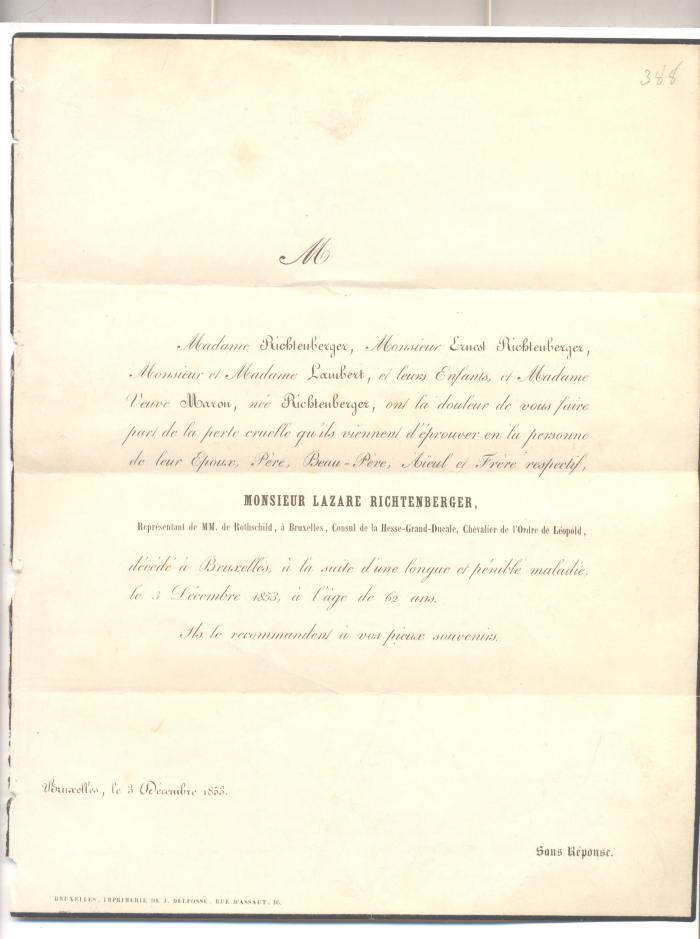 388
M
Madame Richtenberger, Monsieur Ernest Richtenberger,
Monsieur et Madame Lambert, et leurs Enfants, et Madame
Veuve Maron, née Richtenberger, ont la douleur de vous faire
part de la perte cruelle qu'ils viennent d'éprouver en la personne
de leur Epoux, Père, Beau-Père, Aïeul et Frère respectif,
MONSIEUR LAZARE RICHTENBERGER,
Représentant de MM. de Rothschild, à Bruxelles, Consul de la Hesse-Grand-Ducale, Chevalier de l'Ordre de Léopold,
décédé à Bruxelles, à la suite d'une longue et pénible maladie,
le 3 Décembre 1853, à l'âge de 62 ans.
Ils le recommandent à vos pieux souvenirs.
Bruxelles, le 3 Décembre 1853.
Sans Réponse.
BRUXELLES, IMPRIMERIE DE J. DELFOSSE, RUE D'ASSAUT, 16.